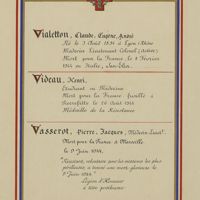 Vialetton, Claude, Eugène, André
Né le 3 Août 1894 à Lyon (Rhône
Médecin Lieutenant Colonel (Active)
Mort pour la France, le 8 Février
1944 en Italie, San-Elia.
Videau, Henri.
Étudiant en Médecine
Mort pour la France fusillé à
le 20 Août 1944
Médaille de la Résistance
Vasserot, Pierre, Jacques, Médecin Lieut.
Mort pour la France à Marseille
le 9 Juin 1944.
"Résistant, volontaire pour les missions les plus
périlleuses, a trouvé une mort glorieuse le
9 Juin 1944."
Légion d'Honneur
à titre posthume